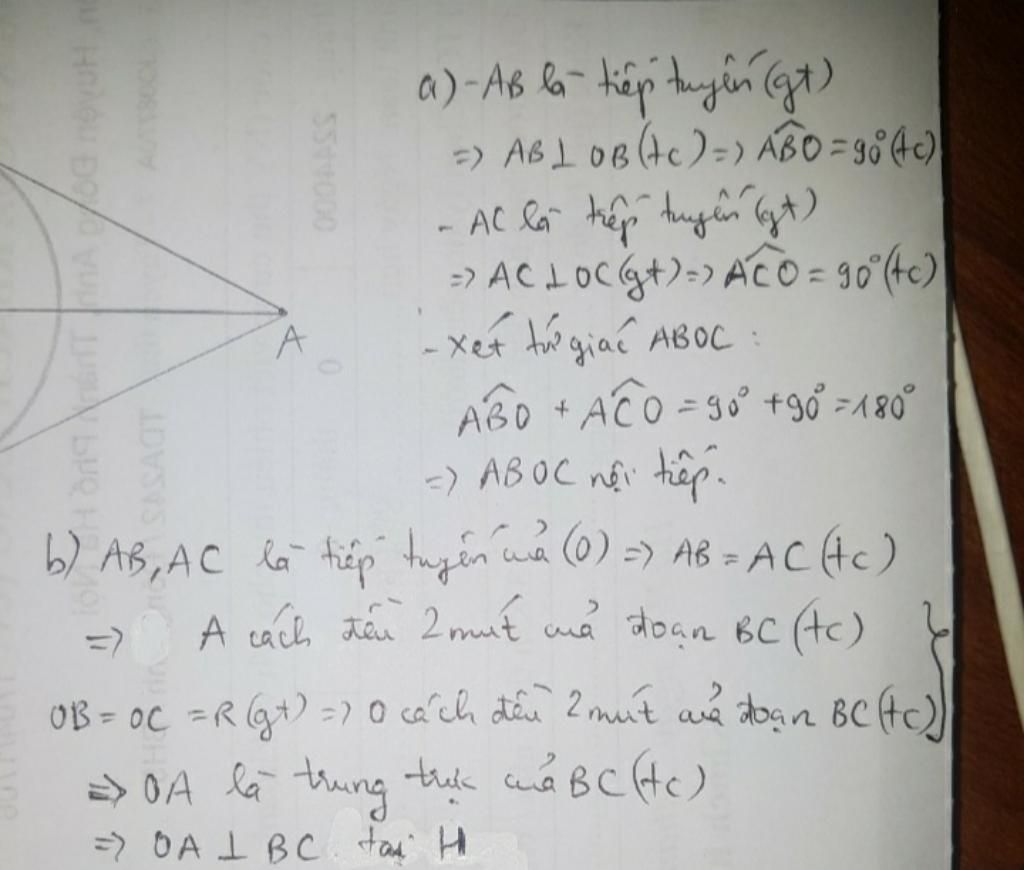 a) - AB là tiếp tuyến (gt)
=> AB ⊥ OB (tc) => \widehat{ABO} = 90° (tc)
- AC là tiếp tuyến (gt)
=> AC ⊥ OC (gt) => \widehat{ACO} = 90° (tc)
A
- Xét tứ giác ABOC :
\widehat{ABO} + \widehat{ACO} = 90° + 90° = 180°
=> ABOC nội tiếp.
b) AB, AC là tiếp tuyến của (O) => AB = AC (tc)
=> A cách đều 2 mút của đoạn BC (tc)
OB = OC = R (gt) => O cách đều 2 mút của đoạn BC (tc) }
=> OA là trung trực của BC (tc)
=> OA ⊥ BC tại H